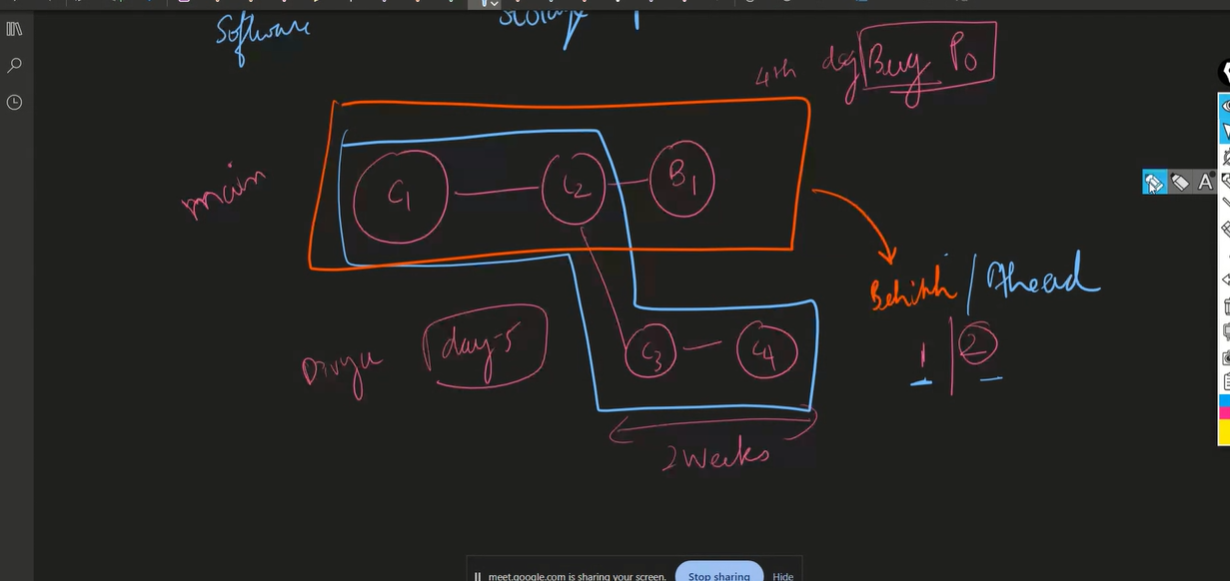 Software
4th day Bug P0
main
C1 C2 B1
Behind / Ahead
1 | 2
Divya day-5 C3 C4
2 Weeks
A
meet.google.com is sharing your screen. Stop sharing Hide